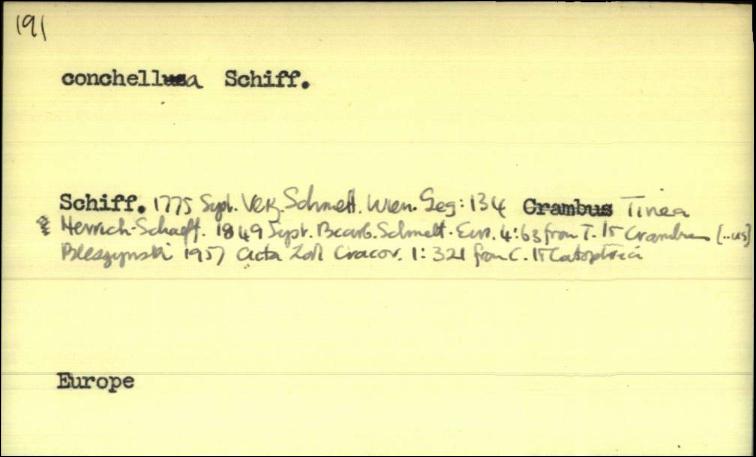 191
conchella Schiff.
Schiff. 1775 Syst. Verz. Schmett. Wien. Geg: 134 Crambus Tinea
Herrich-Schaeff. 1849 Syst. Bearb. Schmett. Eur. 4:63 from T. to Crambus [..us]
Bleszynski 1957 Acta Zool Cracov. 1: 321 from C. to Catoptria
Europe